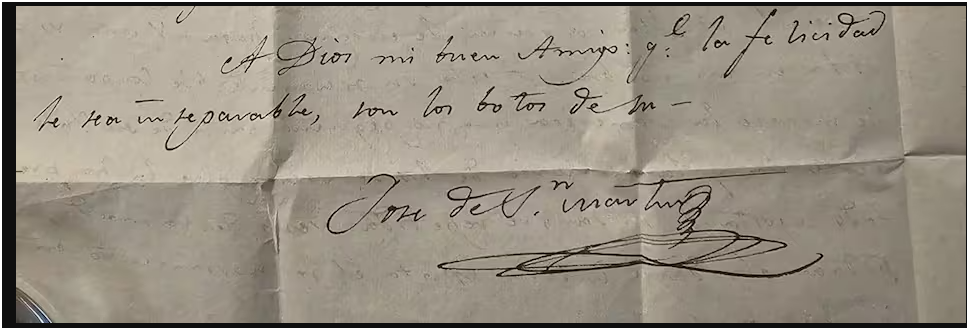 A Dios mi buen Amigo: q.e la felicidad
le sea inseparable, son los botos de su –
Jose de S.n Martin